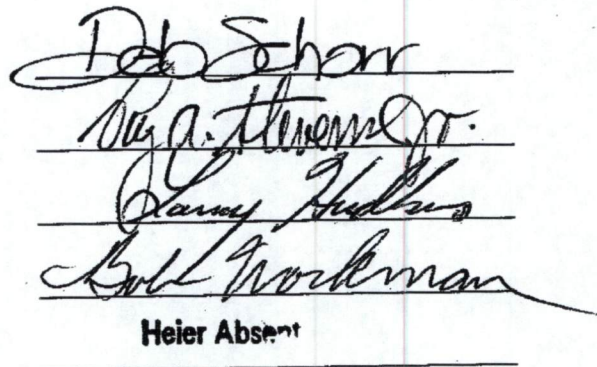 Deb Schorr
Ray A. Stevens Jr.
Larry Hudkins
Bob Workman
Heier Absent